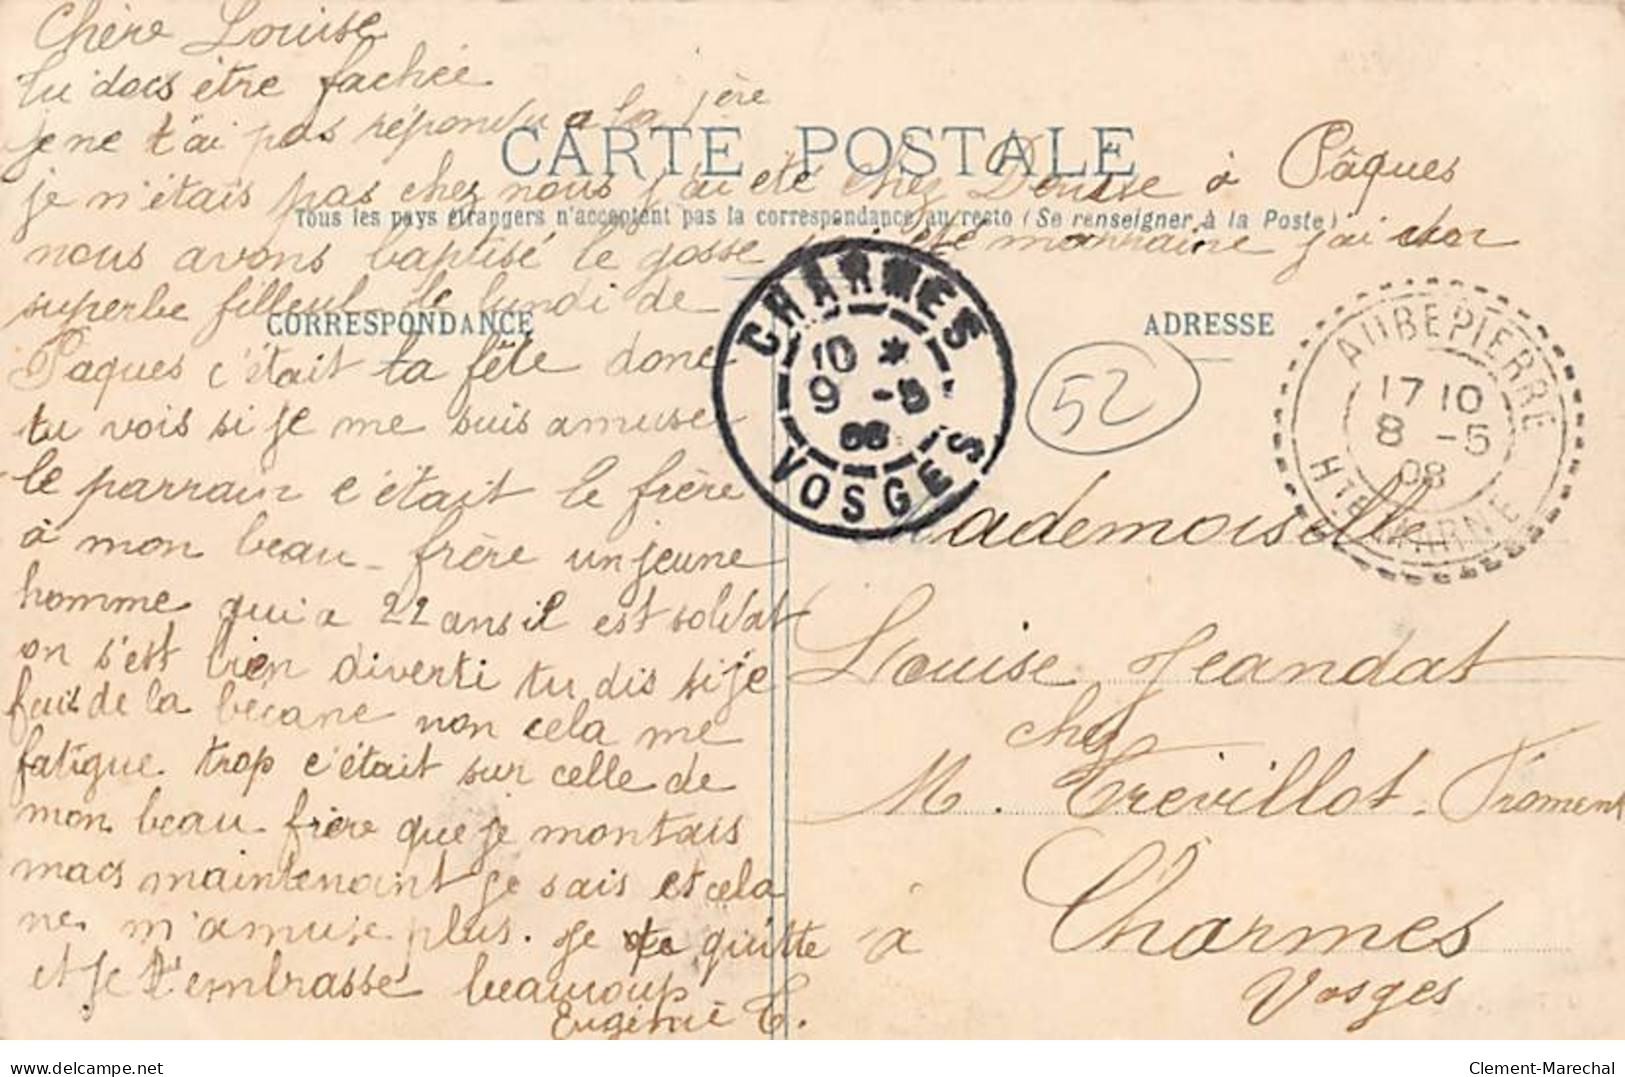 Chère Louise
tu dois être fachée
je ne t'ai pas répondu a la 1ère
CARTE POSTALE
je n'étais pas chez nous j'ai été chez Denise à Pâques
Tous les pays étrangers n'acceptent pas la correspondance au recto (Se renseigner à la Poste)
nous avons baptisé le gosse j'ai été marraine j'ai un
superbe filleul le lundi de
CORRESPONDANCE
ADRESSE
Paques c'était la fête donc
tu vois si je me suis amusé
le parrain c'était le frère
à mon beau-frère un jeune
homme qui a 22 ans il est soldat
on s'est bien diverti tu dis si je
fais de la becane non cela me
fatigue trop c'était sur celle de
mon beau frère que je montais
mais maintenant je sais et cela
ne m'amuse plus. Je te quitte
et je t'embrasse beaucoup
Eugénie C.
CHARMES
10 *
9 -5
08
VOSGES
52
AUBEPIERRE
17 10
8 -5
08
HTE MARNE
Mademoiselle
Louise Jeandat
chez
M. Trevillot. Froment
à Charmes
Vosges
delcampe.net
Clement-Marechal